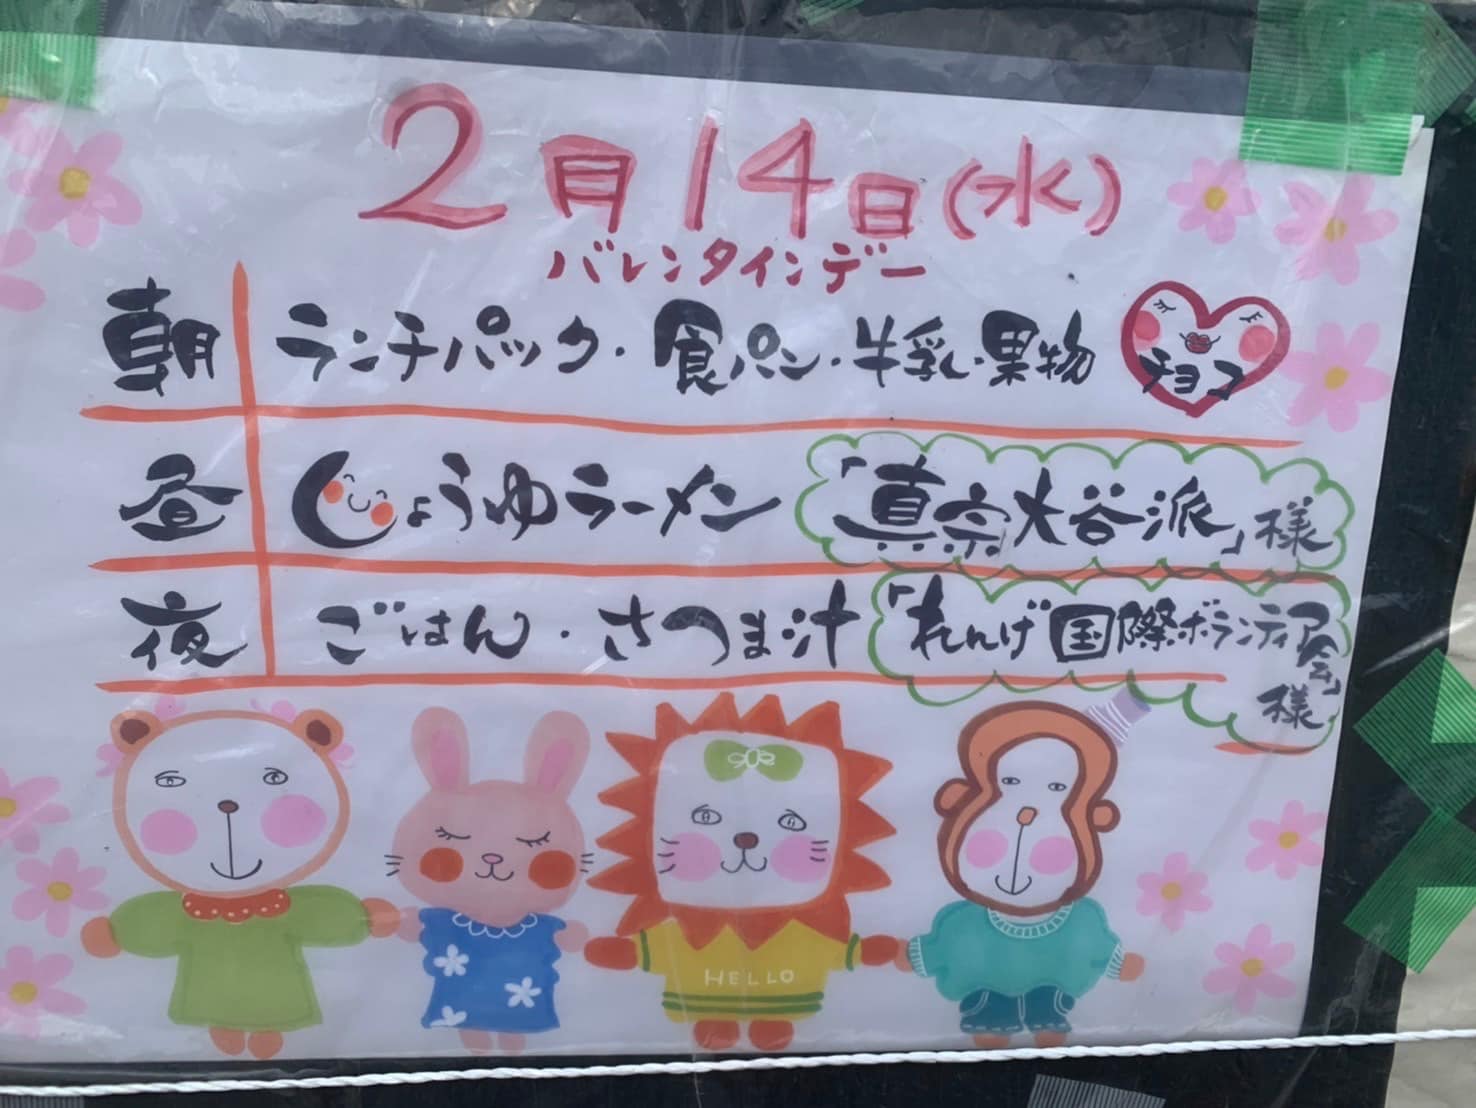 2月14日(水)
バレンタインデー
朝 ランチパック・食パン・牛乳・果物 チョコ
昼 しょうゆラーメン 「真宗大谷派」様
夜 ごはん・さつま汁 「れんげ国際ボランティア会」様
HELLO